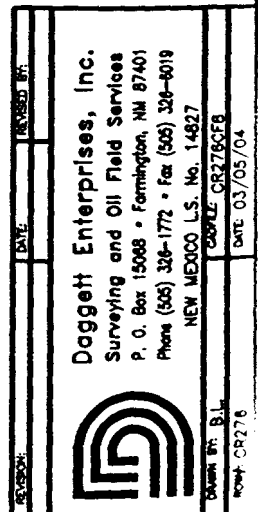 REVISION:
DATE:
REVISED BY:
Daggett Enterprises, Inc.
Surveying and Oil Field Services
P. O. Box 15068 • Farmington, NM 87401
Phone (505) 326-1772 • Fax (505) 326-6019
NEW MEXICO L.S. No. 14827
DRAWN BY: B.L.
CADFILE: CR276CF8
ROW#: CR276
DATE: 03/05/04